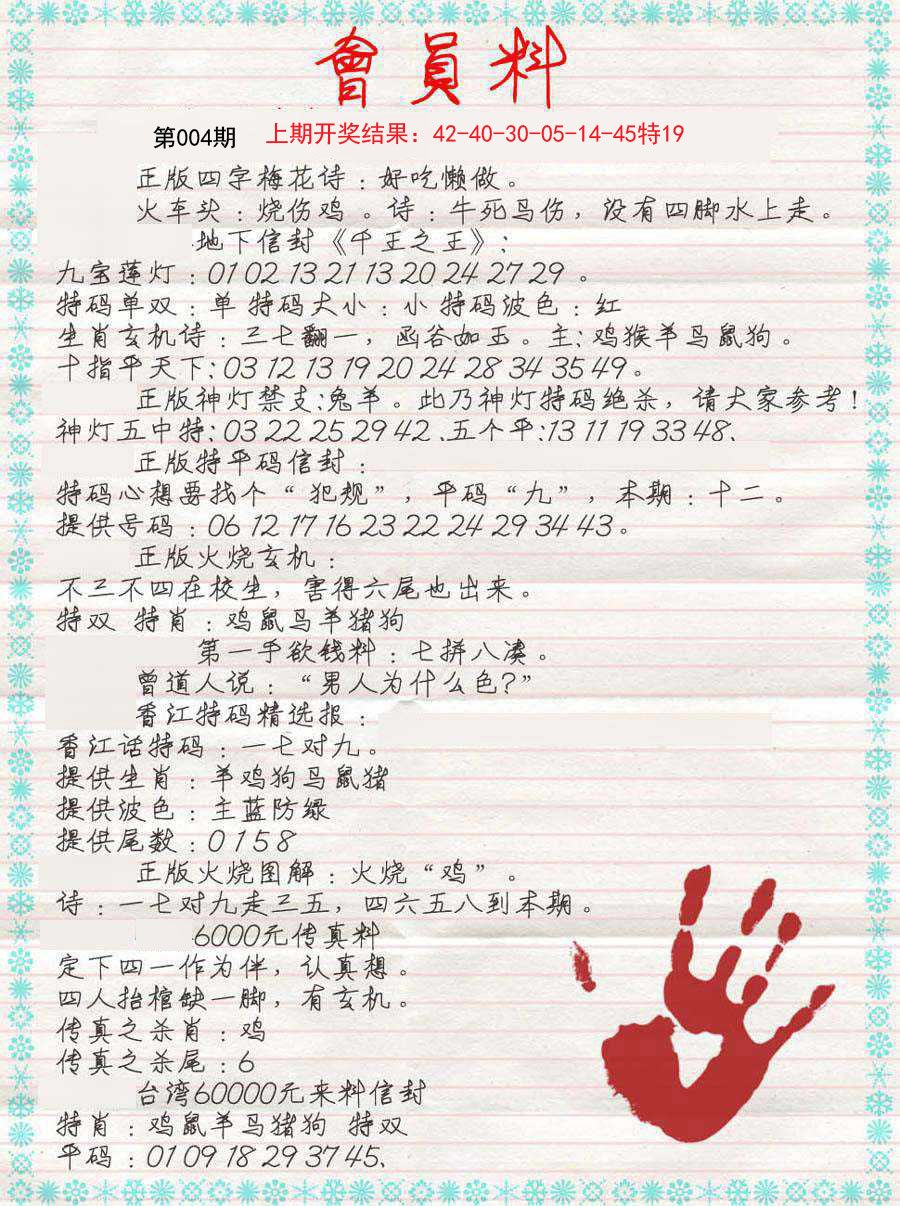 會員料
第004期 上期开奖结果：42-40-30-05-14-45特19
正版四字梅花诗：好吃懒做。
火车头：烧伤鸡。诗：牛死鸟伤，没有四脚水上走。
地下信封《千王之王》：
九宝莲灯：01 02 13 21 13 20 24 27 29 。
特码单双：单 特码大小：小 特码波色：红
生肖玄机诗：三七翻一，函谷如玉。主：鸡猴羊马鼠狗。
十指平天下：03 12 13 19 20 24 28 34 35 49。
正版神灯禁支：兔羊。此乃神灯特码绝杀，请大家参考！
神灯五中特：03 22 25 29 42 .五个平：13 11 19 33 48、
正版特平码信封：
特码心想要找个“犯规”，平码“九”，本期：十二。
提供号码：06 12 17 16 23 22 24 29 34 43。
正版火烧玄机：
不三不四在校生，害得六尾也出来。
特双 特肖：鸡鼠马羊猪狗
第一手欲钱料：七拼八凑。
曾道人说：“男人为什么色？”
香江特码精选报：
香江话特码：一七对九。
提供生肖：羊鸡狗马鼠猪
提供波色：主蓝防绿
提供尾数：0 1 5 8
正版火烧图解：火烧“鸡”。
诗：一七对九走三五，四六五八到本期。
6000元传真料
定下四一作为伴，认真想。
四人抬棺缺一脚，有玄机。
传真之杀肖：鸡
传真之杀尾：6
台湾60000元来料信封
特肖：鸡鼠羊马猪狗 特双
平码：01 09 18 29 37 45、